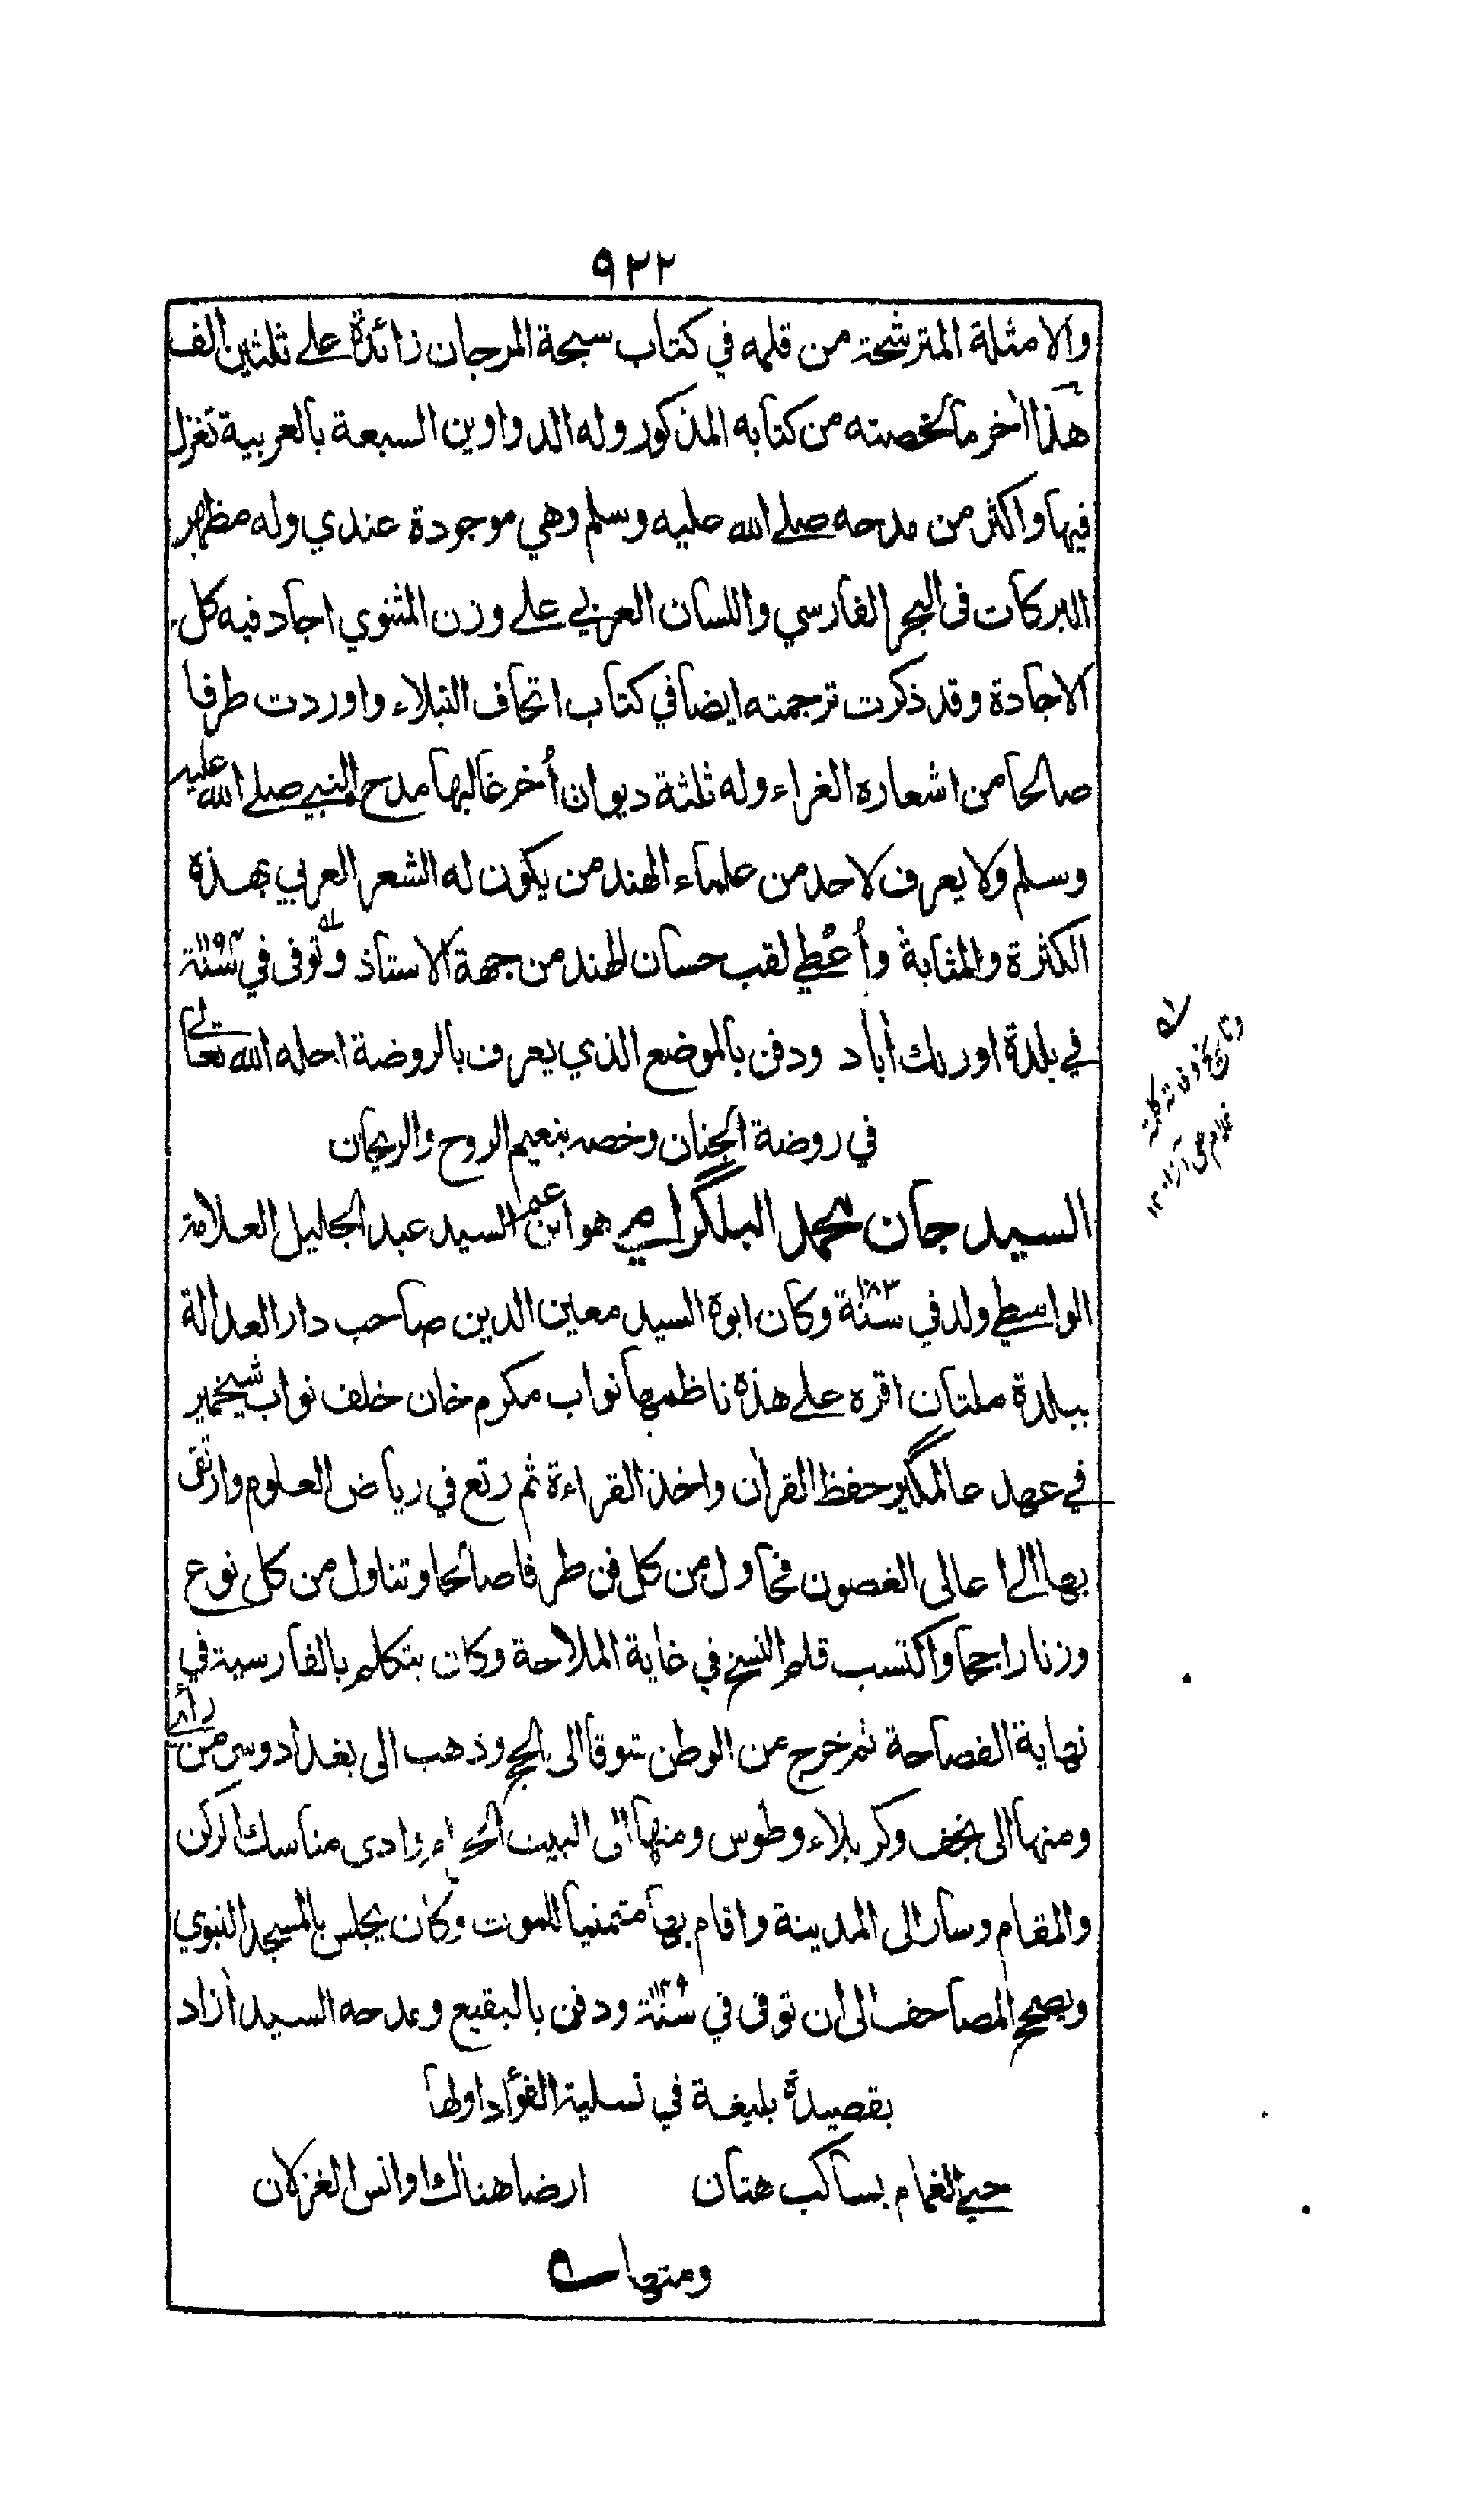 ٩٢٢
والامثلة المترشحة من قلمه في كتاب سبحة المرجان زائدة على ثلثين الف
هذا اخر ما لخصته من كتابه المذكور وله الدواوين السبعة بالعربية تغزل
فيها واكثر من مدحه صلے الله عليه وسلم وهي موجودة عندي وله مظهر
البركات فى البحر الفارسي واللسان العربي على وزن المثنوي اجاد فيه كل
الاجادة وقد ذكرت ترجمته ايضا في كتاب اتحاف النبلاء واوردت طرفا
صالحا من اشعاره الغراء وله ثلثة ديوان أخر غالبها مدح النبي صلے الله عليه
وسلم ولا يعرف لاحد من علماء الهند من يكون له الشعر العربي بهذه
الكثرة والمثابة وأُعْطي لقب حسان الهند من جهة الاستاذ وتوفى في سنة ١١٩٤
في بلدة اورنك أباد ودفن بالموضع الذي يعرف بالروضة احله الله تعالى
في روضة الجنان وخصه بنعيم الروح والريحان
السيد جان محمد البلگرامي هو ابن عم السيد عبد الجليل العلامة
الواسطي ولد في سنة ١٠٨٣ وكان ابوه السيد معين الدين صاحب دار العدالة
ببلدة ملتان اقره على هذه ناظمها نواب مكرم خان خلف نواب شيخمير
في عهد عالمگير حفظ القرأن واخذ القراءة ثم رتع في رياض العلوم وارتقى
بها الى اعالى الغصون فحاول من كل فن طرفا صالحا وتناول من كل نوع
وزنا راجحا واكتسب قلم النسخ في غاية الملاحة وكان يتكلم بالفارسية في
نهاية الفصاحة ثم خرج من الوطن شوقا الى الحج وذهب الى بغداد وسر من رأى
ومنها الى نجف وكربلاء وطوس ومنها الى البيت الحرام وادى مناسك الركن
والمقام وسار الى المدينة واقام بها متمنيا للموت وكان يجلس بالمسجد النبوي
ويصحح المصاحف الى ان توفى في سنة ودفن بالبقيع ومدحه السيد أزاد
بقصيدة بليغة في تسلية الفؤاد اولها
حيي الغمام بساكب هتان ارضا هناك اوانس الغزلان
ومنها